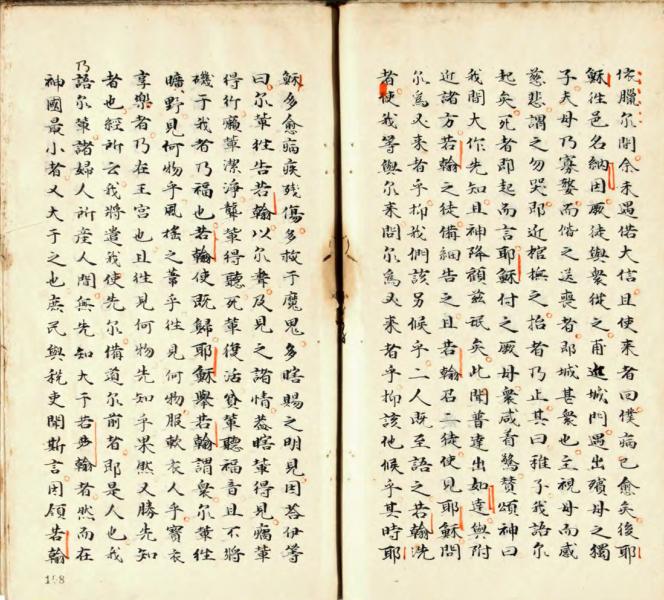 依臘尔間余未遇偌大信且使来者囘僕病已愈矣後耶
穌徃邑名納因厥徒與衆從之甫進城門遇出殯母之獨
子夫母乃寡婺而偕之送喪者即城甚衆也主視母而感
慈悲謂之勿哭即近棺撫之抬者乃止其曰稚子我語尔
起矣死者即起而言耶穌付之厥母衆咸着驚賛頌神曰
我間大作先知且神降顧兹氓矣此聞普達出如達與附
近諸方若翰之徒備細告之且若翰召二徒使見耶穌問
尔爲乂来者乎抑我們該另候乎二人既至語之若翰洗
者使我等與尔来問尔爲乂来者乎抑該他候乎其時耶
穌多愈病疾残傷多救于魔鬼多瞎賜之明見因荅伊等
曰尔輩徃告若翰以尔聿及見之諸情葢瞎輩得見瘸輩
得行癩輩潔淨聾輩得聽死輩復活貧輩聽福音且不將
磯于我者乃福也若翰使既歸耶穌舉若翰謂衆尔輩徃
曠野見何物乎風搖之葦乎徃見何物服軟衣人乎寳衣
享樂者乃在王宮也且徃見何物先知乎果然又勝先知
者也經所云我將遣我使先尔備道尔前者即是人也我
乃語尔輩諸婦人所產人間無先知大于若翰者然而在
神國最小者乂大于之也庶民與稅吏聞斯言因領若翰
198